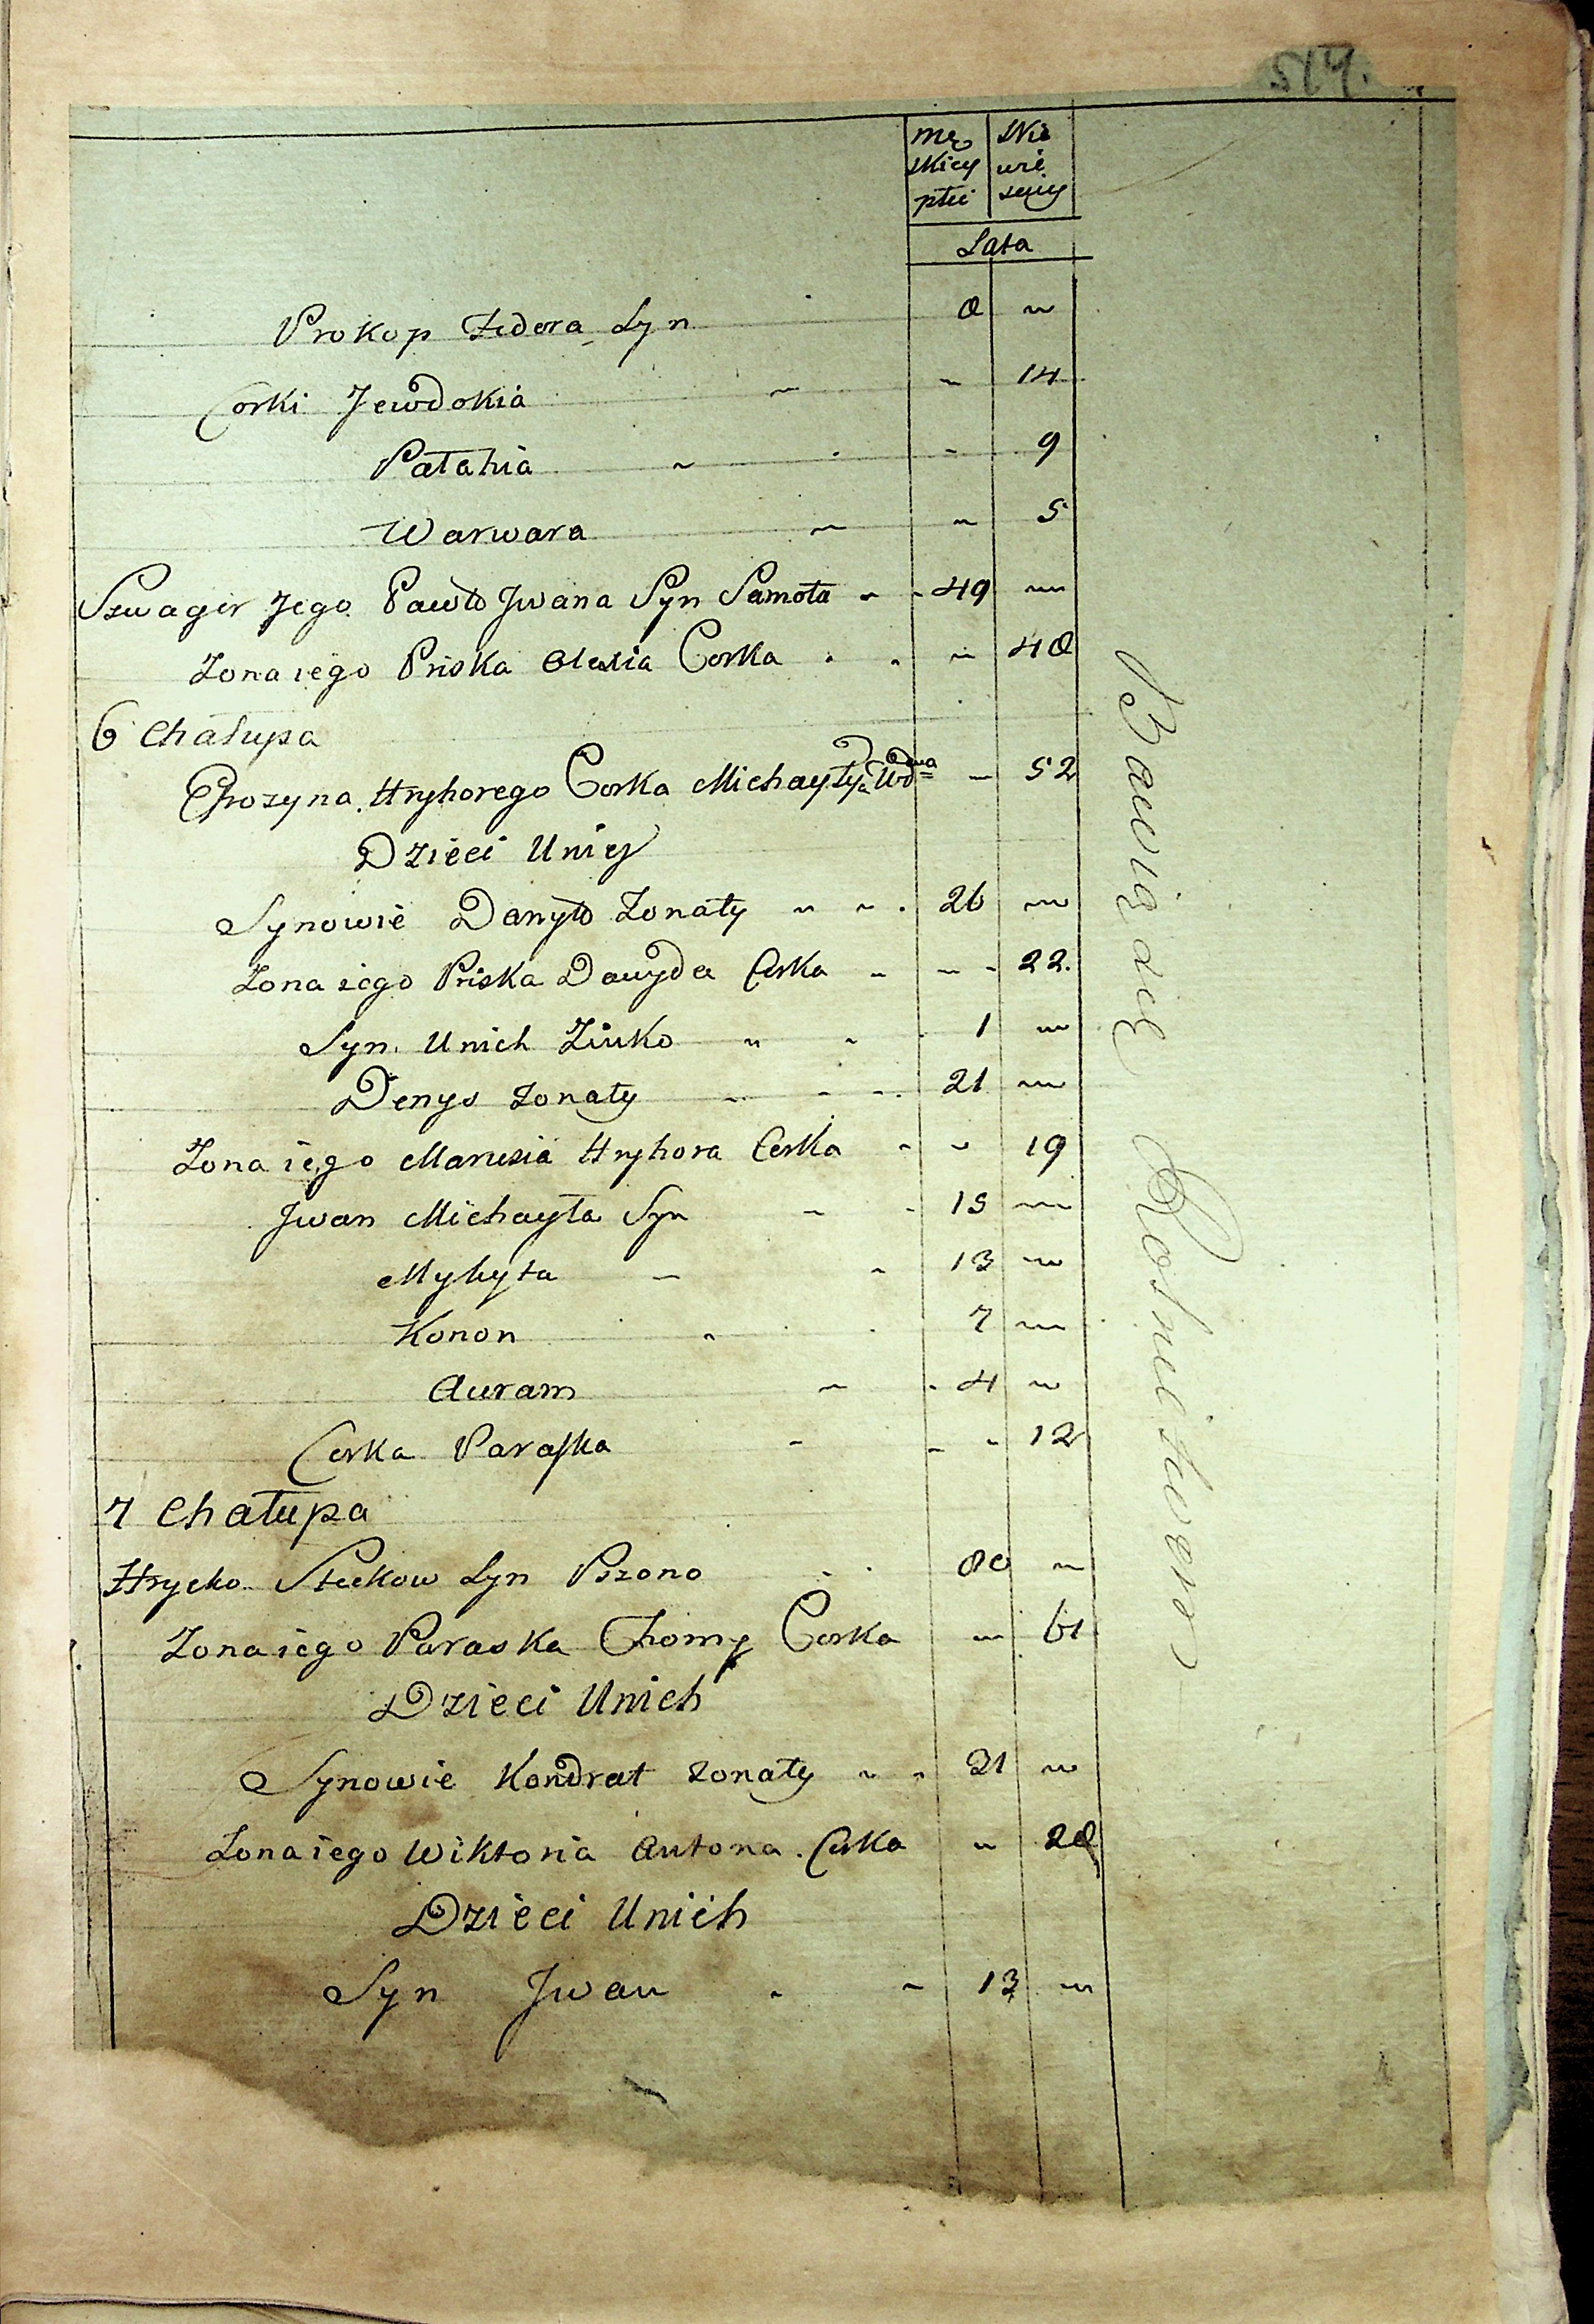 514.
mę skiey płci | Nie wie sciey
Lata
Prokop Fedora Syn 8 „
Corki Jewdokia „ „ 14
Pałahia „ „ 9
Warwara „ „ 5
Szwagier Jego Pawło Jwana Syn Samoła „ 49 „
Zona iego Priska Olexia Corka „ „ 48
6 Chałupa
Efrozyna Hryhorego Corka Michayły Wdwa „ 52
Dzieci Uniey
Synowie Danyło Zonaty „ „ 26 „
Zona iego Priska Dawyda Corka „ „ 22.
Syn Unich Zinko „ „ 1 „
Denys zonaty „ „ 21 „
Zona iego Marusia Hryhora Corka „ „ 19
Jwan Michayła Syn „ 15 „
Mykyta „ „ 13 „
Konon „ 7 „
Auram „ 4 „
Corka Paraska „ „ 12
7 Chałupa
Hrycko Steckow Syn Pszono 80 „
Zona iego Paraska Chomy Corka „ 61
Dzieci Unich
Synowie Kondrat zonaty „ „ 31 „
Zona iego Wiktoria Antona Corka „ 28
Dzieci Unich
Syn Jwan „ „ 13 „